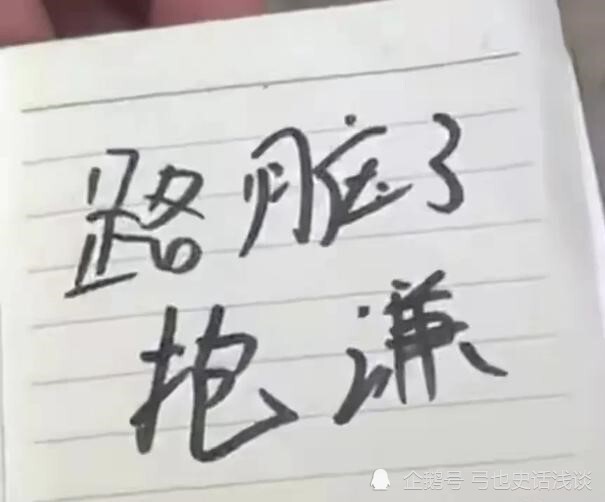 路脏了
抱谦
企鹅号 弓也史话浅谈